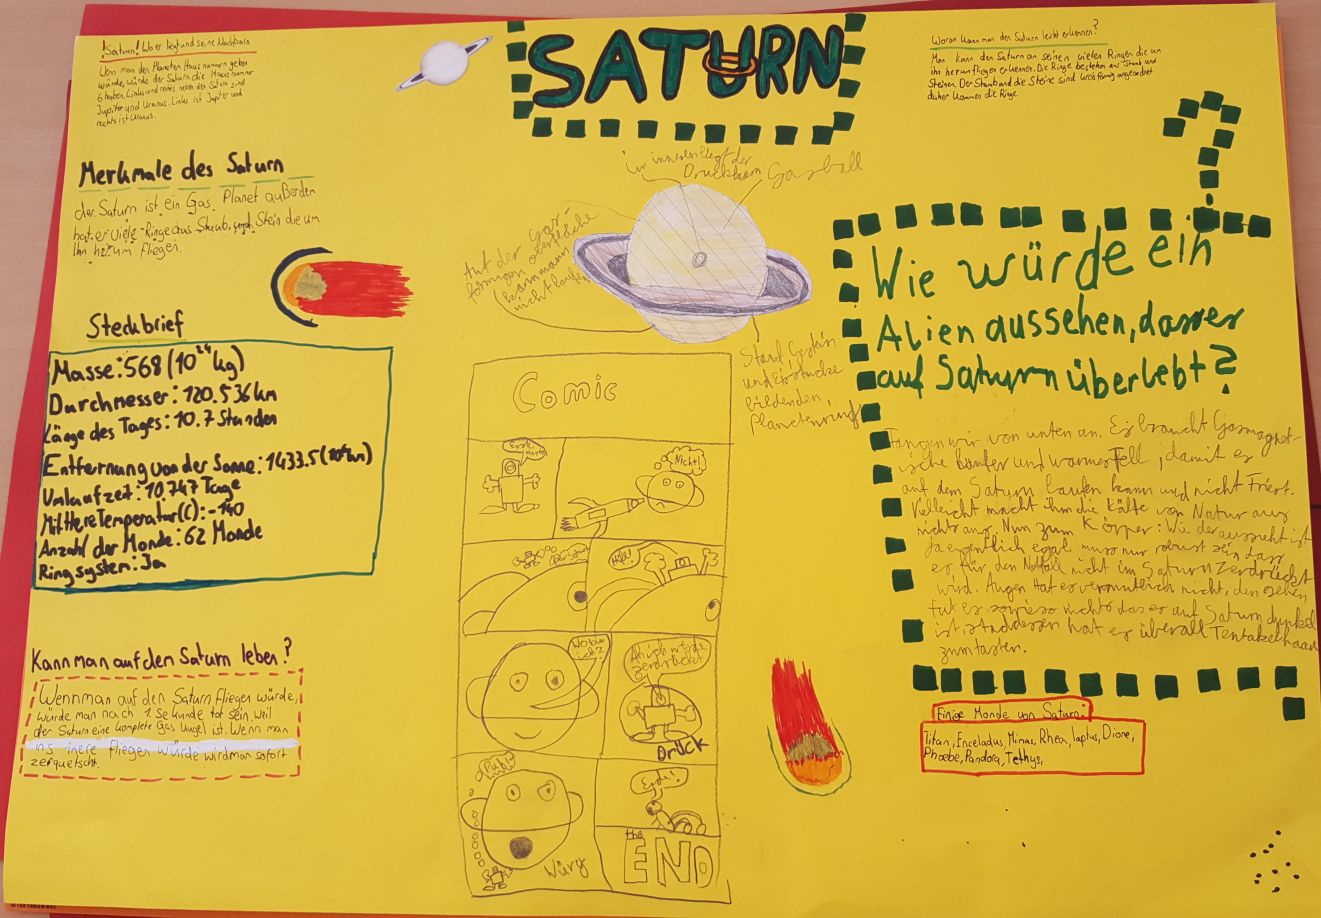 SATURN
! Saturn! Wo er liegt und seine Nachbarn
Wenn man den Planeten Hausnummern geben
würde, würde der Saturn die Hausnummer
6 haben. Links und rechts neben den Saturn sind
Jupiter und Uranus. Links ist Jupiter und
rechts ist Uranus.
Merkmale des Saturn
der Saturn ist ein Gas Planet außerdem
hat er viele Ringe aus Staub und Stein die um
ihn herum fliegen.
Steckbrief
Masse: 568 (10²⁴ kg)
Durchmesser: 120.536 km
Länge des Tages: 10.7 Stunden
Entfernung von der Sonne: 1433.5 (10⁶ km)
Umlaufzeit: 10 747 Tage
Mittlere Temperatur (C): -140
Anzahl der Monde: 62 Monde
Ringsystem: Ja
Kann man auf den Saturn leben?
Wenn man auf den Saturn fliegen würde,
würde man nach 1. Sekunde tot sein weil
der Saturn eine komplete Gas Kugel ist. Wenn man
ins inere fliegen würde wird man sofort
zerquetscht.
im inneren liegt der
Druckkern
Gasball
Auf der Gas-
förmigen oberfläche
kann man
nicht laufen
Staub Gestein
und Eisstücke
bildenden
Planetenring
Comic
Erster
Nicht!
Wo bin
ich?
Ah ich werde
zerdrückt
DRUCK
Würg
Ende!
the
END
Woran kann man den Saturn leicht erkennen?
Man kann den Saturn an seinen vielen Ringen die um
ihn herumfliegen erkennen. Die Ringe bestehen aus Staub und
Steinen. Der Staub und die Steine sind kreisförmig angeordnet
daher kommen die Ringe.
Wie würde ein
Alien aussehen, dass er
auf Saturn überlebt?
Fangen wir von unten an. Es braucht Gasmagnet-
ische und warmes Fell, damit es
auf dem Saturn laufen kann und nicht Friert.
Vielleicht macht ihm die Kälte von Natur aus
nichts aus. Nun zum Körper: Wie der aussieht ist
ja eigentlich egal muss nur robust sein dass
er für den Notfall nicht im Saturn Zerdrückt
wird. Augen Hat es vermutlich nicht, den sehen
tut es sowieso nichts das es auf Saturn dunkel
ist, staddessen hat er überall Tentakelhaare
zum tasten.
Einige Monde von Saturn:
Titan, Enceladus, Mimas, Rhea, Iaptus, Dione,
Phoebe, Pandora, Tethys,